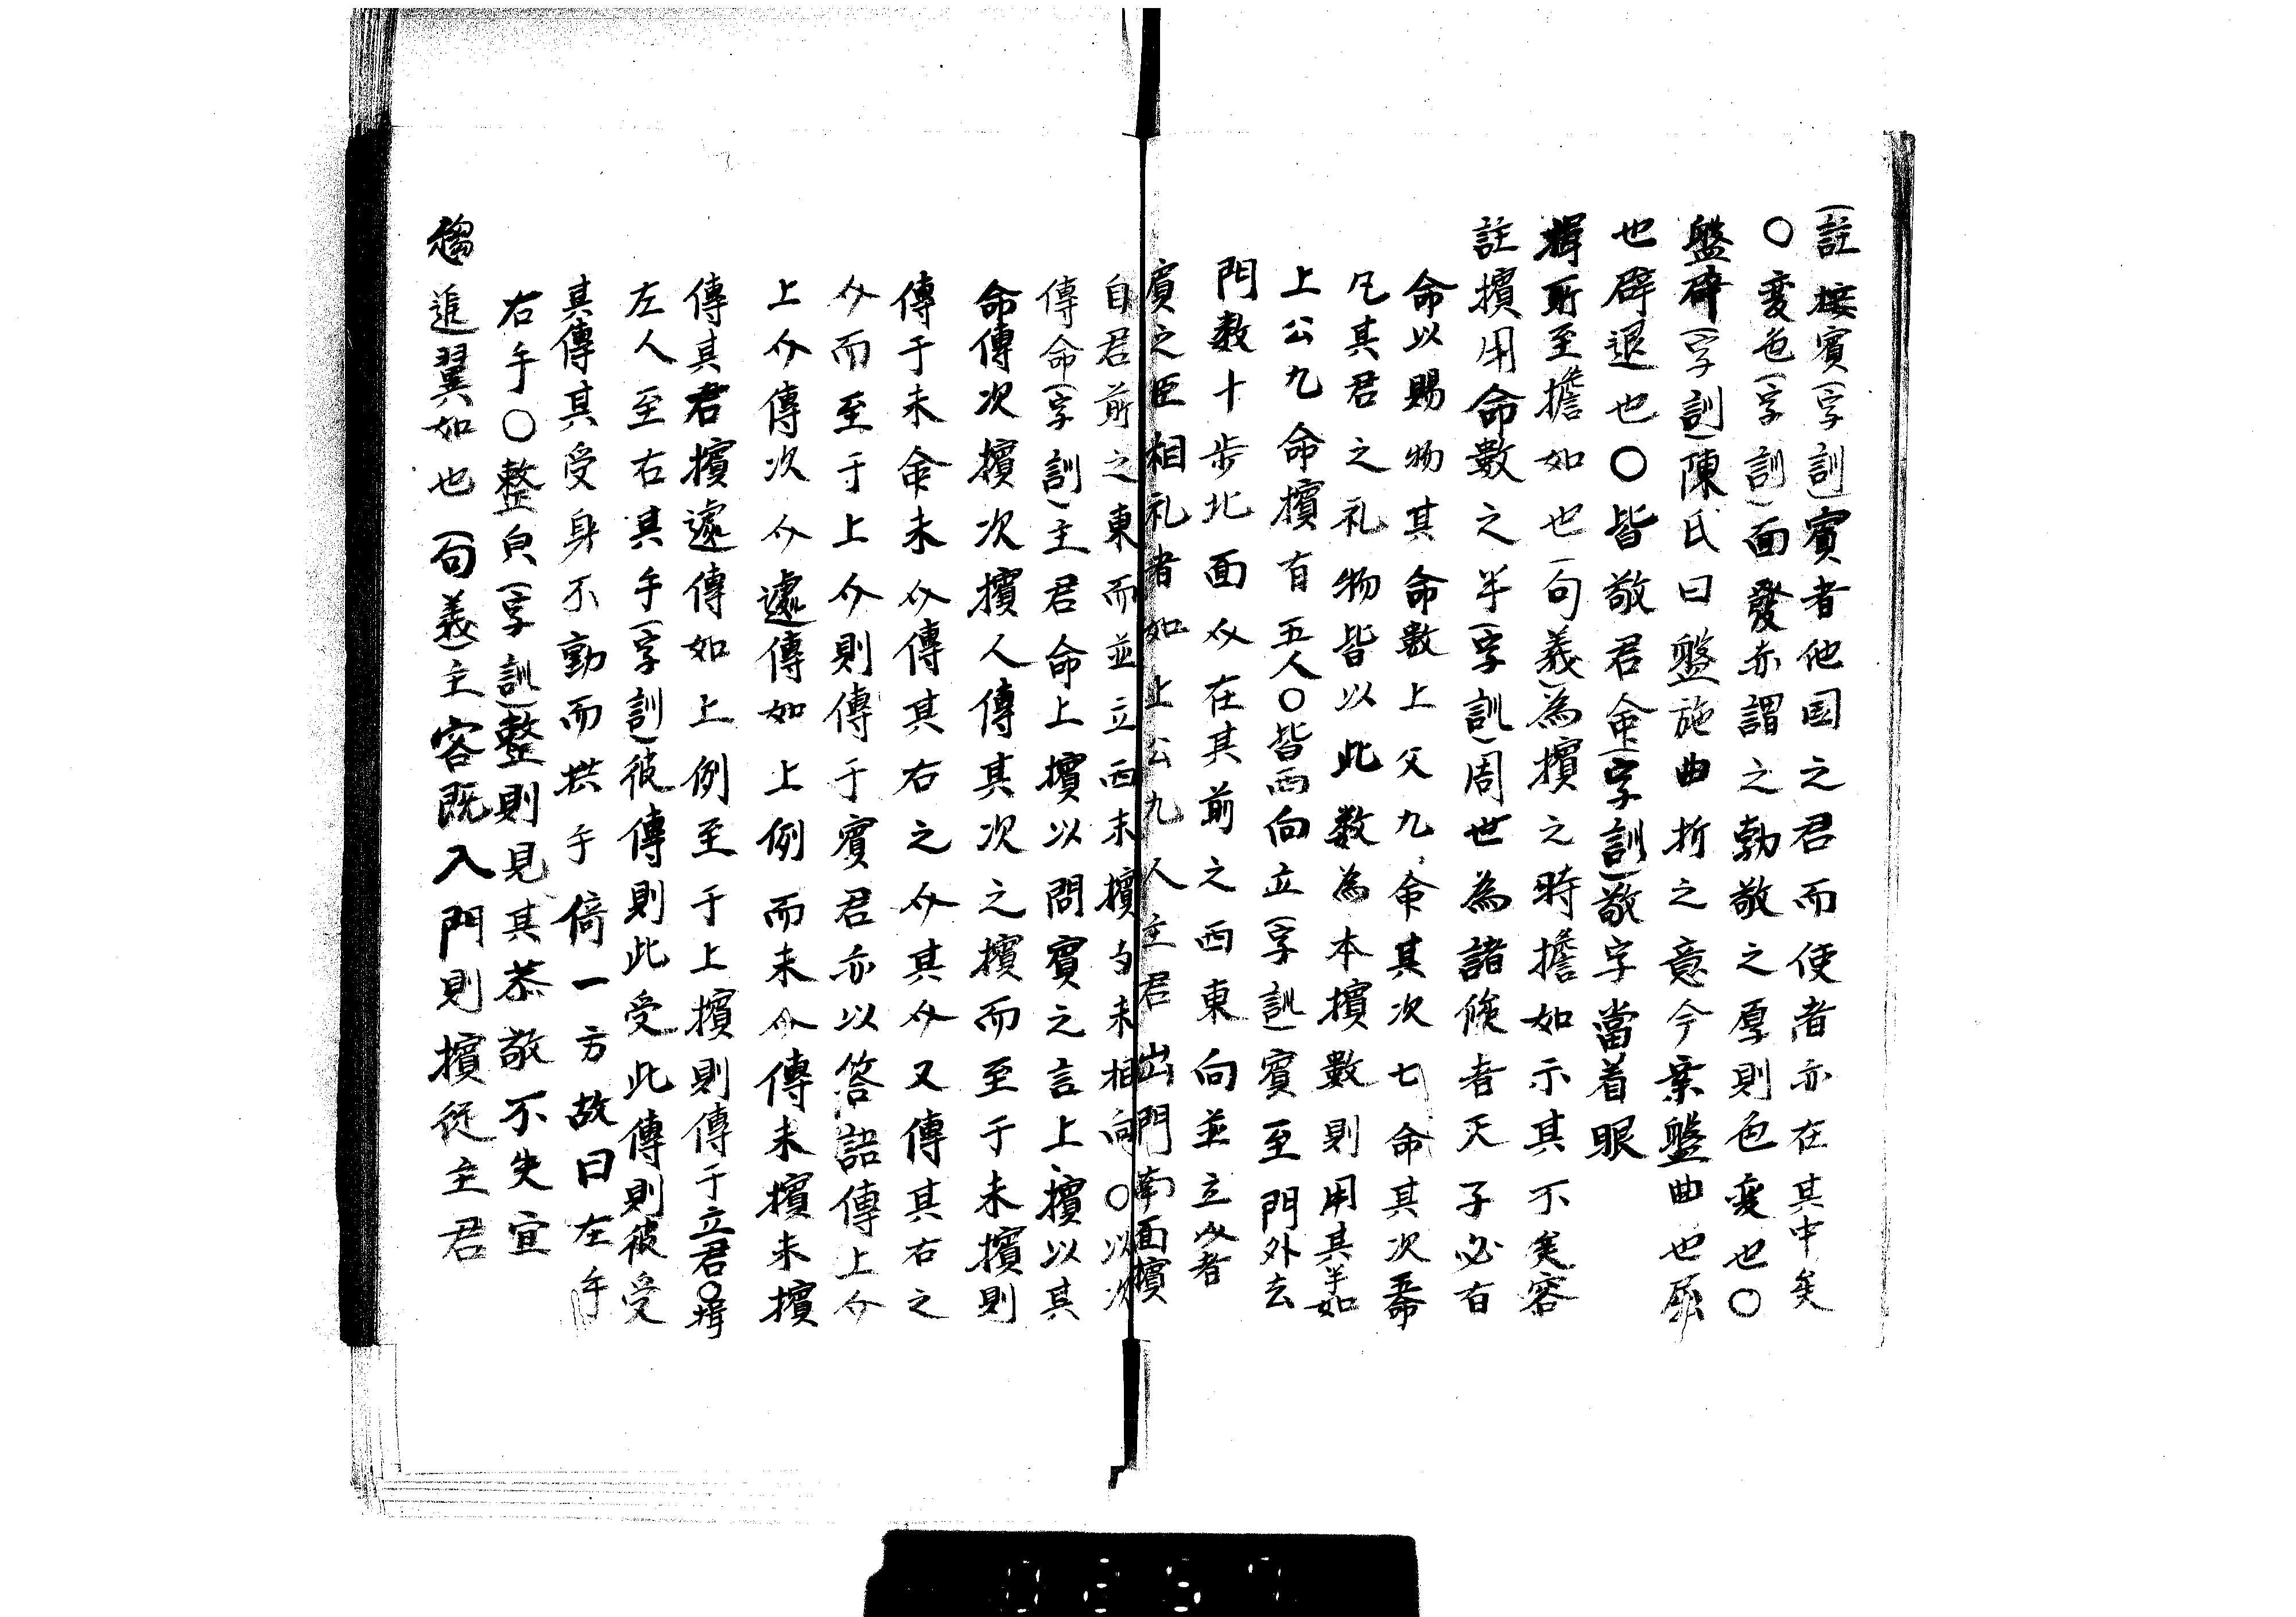 (註)接賓(字訓)賓者他国之君而使者亦在其中矣
〇变色(字訓)面發赤謂之勃敬之厚則色变也〇
盤辟(字訓)陳氏曰盤施曲折之意今案盤曲也
也辟退也〇皆敬君命(字訓)敬字當着眼
揖所至襜如也(句義)為擯之時襜如示其不矣容
註擯用命數之半(字訓)周世為諸侯者天子必有
命以賜物其命数上父九命其次七命其次五命
凡其君之礼物皆以此数為本擯數則用其半如
上公九命擯有五人〇皆西向立(字訓)賓至門外去
門数十步北面介在其前之西東向並立介者
賓之臣相礼者如上公九人主君出門南面擯
自君前之東而並立西末擯与末相向〇以次
傳命(字訓)主君命上擯以問賓之言上擯以其
命傳次擯次擯人傳其次之擯而至于末擯則
傳于末命末介傳其右之介其介又傳其右之
介而至于上介則傳于賓君亦以答語傳上介
上介傳次介遞傳如上例而末介傳末擯末擯
傳其君擯遞傳如上例至于上擯則傳于立君〇揖
左人至右其手(字訓)彼傳則此受此傳則彼受
其傳其受身不動而拱手倚一方故曰左手
右手〇整皃(字訓)整則見其恭敬不失宜
趨進翼如也(句義)主容既入門則擯從主君